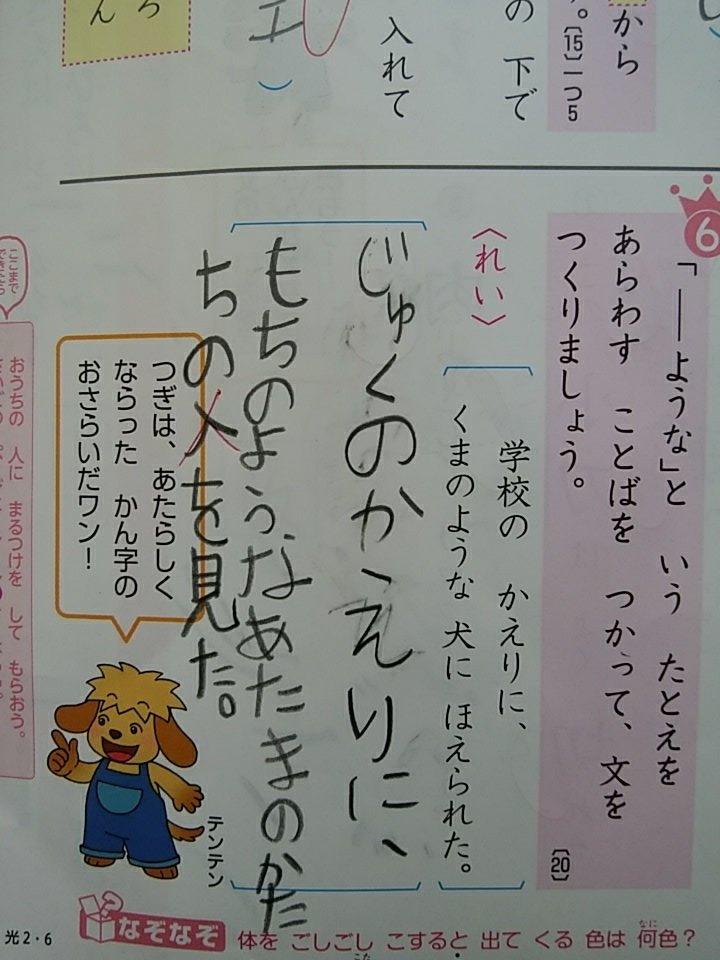 から
。〔15〕一つ5
の 下で
入れて
エ
ろ
ん
6
「――ような」と いう たとえを
あらわす ことばを つかって、文を
つくりましょう。
〔20〕
〈れい〉
学校の かえりに、
くまのような 犬に ほえられた。
じゅくのかえりに、
もちのようなあたまのかた
ちの人を見た。
つぎは、あたらしく
ならった かん字の
おさらいだワン！
テンテン
ここまで
できたら
おうちの 人に まるつけを して もらおう。
なぞなぞ
体を ごしごし こすると 出て くる 色は 何色？
なに
光2・6